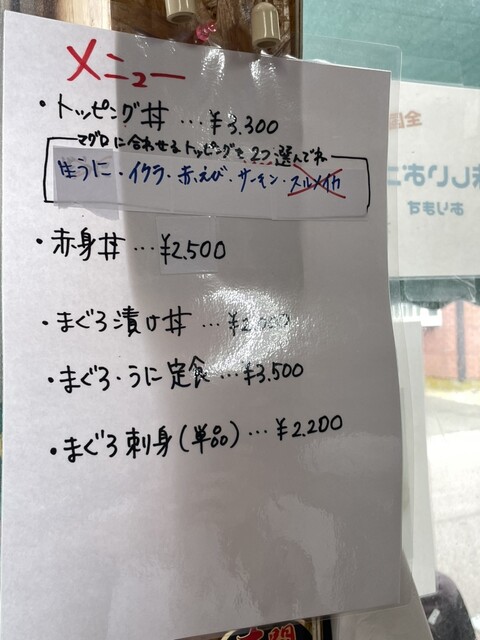 メニュー
・トッピング丼…¥3.300
マグロに合わせるトッピングを2つ選んでね
生うに・イクラ・赤えび・サーモン・スルメイカ
・赤身丼…¥2.500
・まぐろ漬け丼…
・まぐろ・うに定食…¥3.500
・まぐろ刺身(単品)…¥2.200
あります